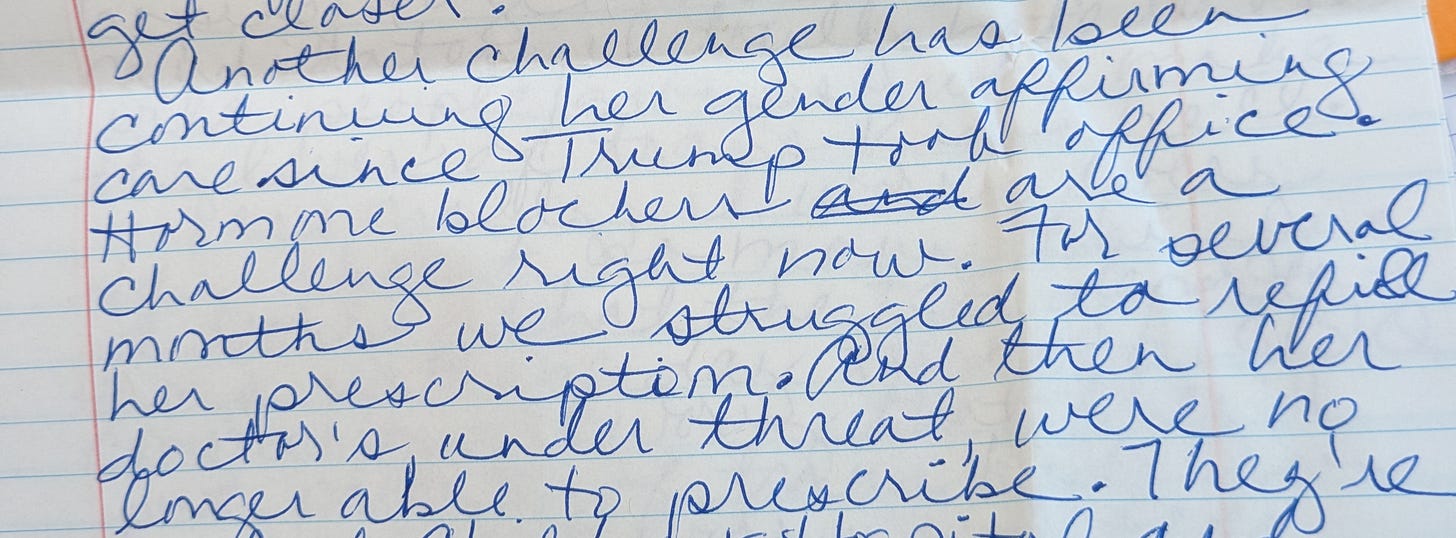 get closer.
Another challenge has been
continuing her gender affirming
care since Trump took office.
Hormone blockers and are a
challenge right now. For several
months we struggled to refill
her prescription. And then her
doctor's, under threat, were no
longer able to prescribe. They're